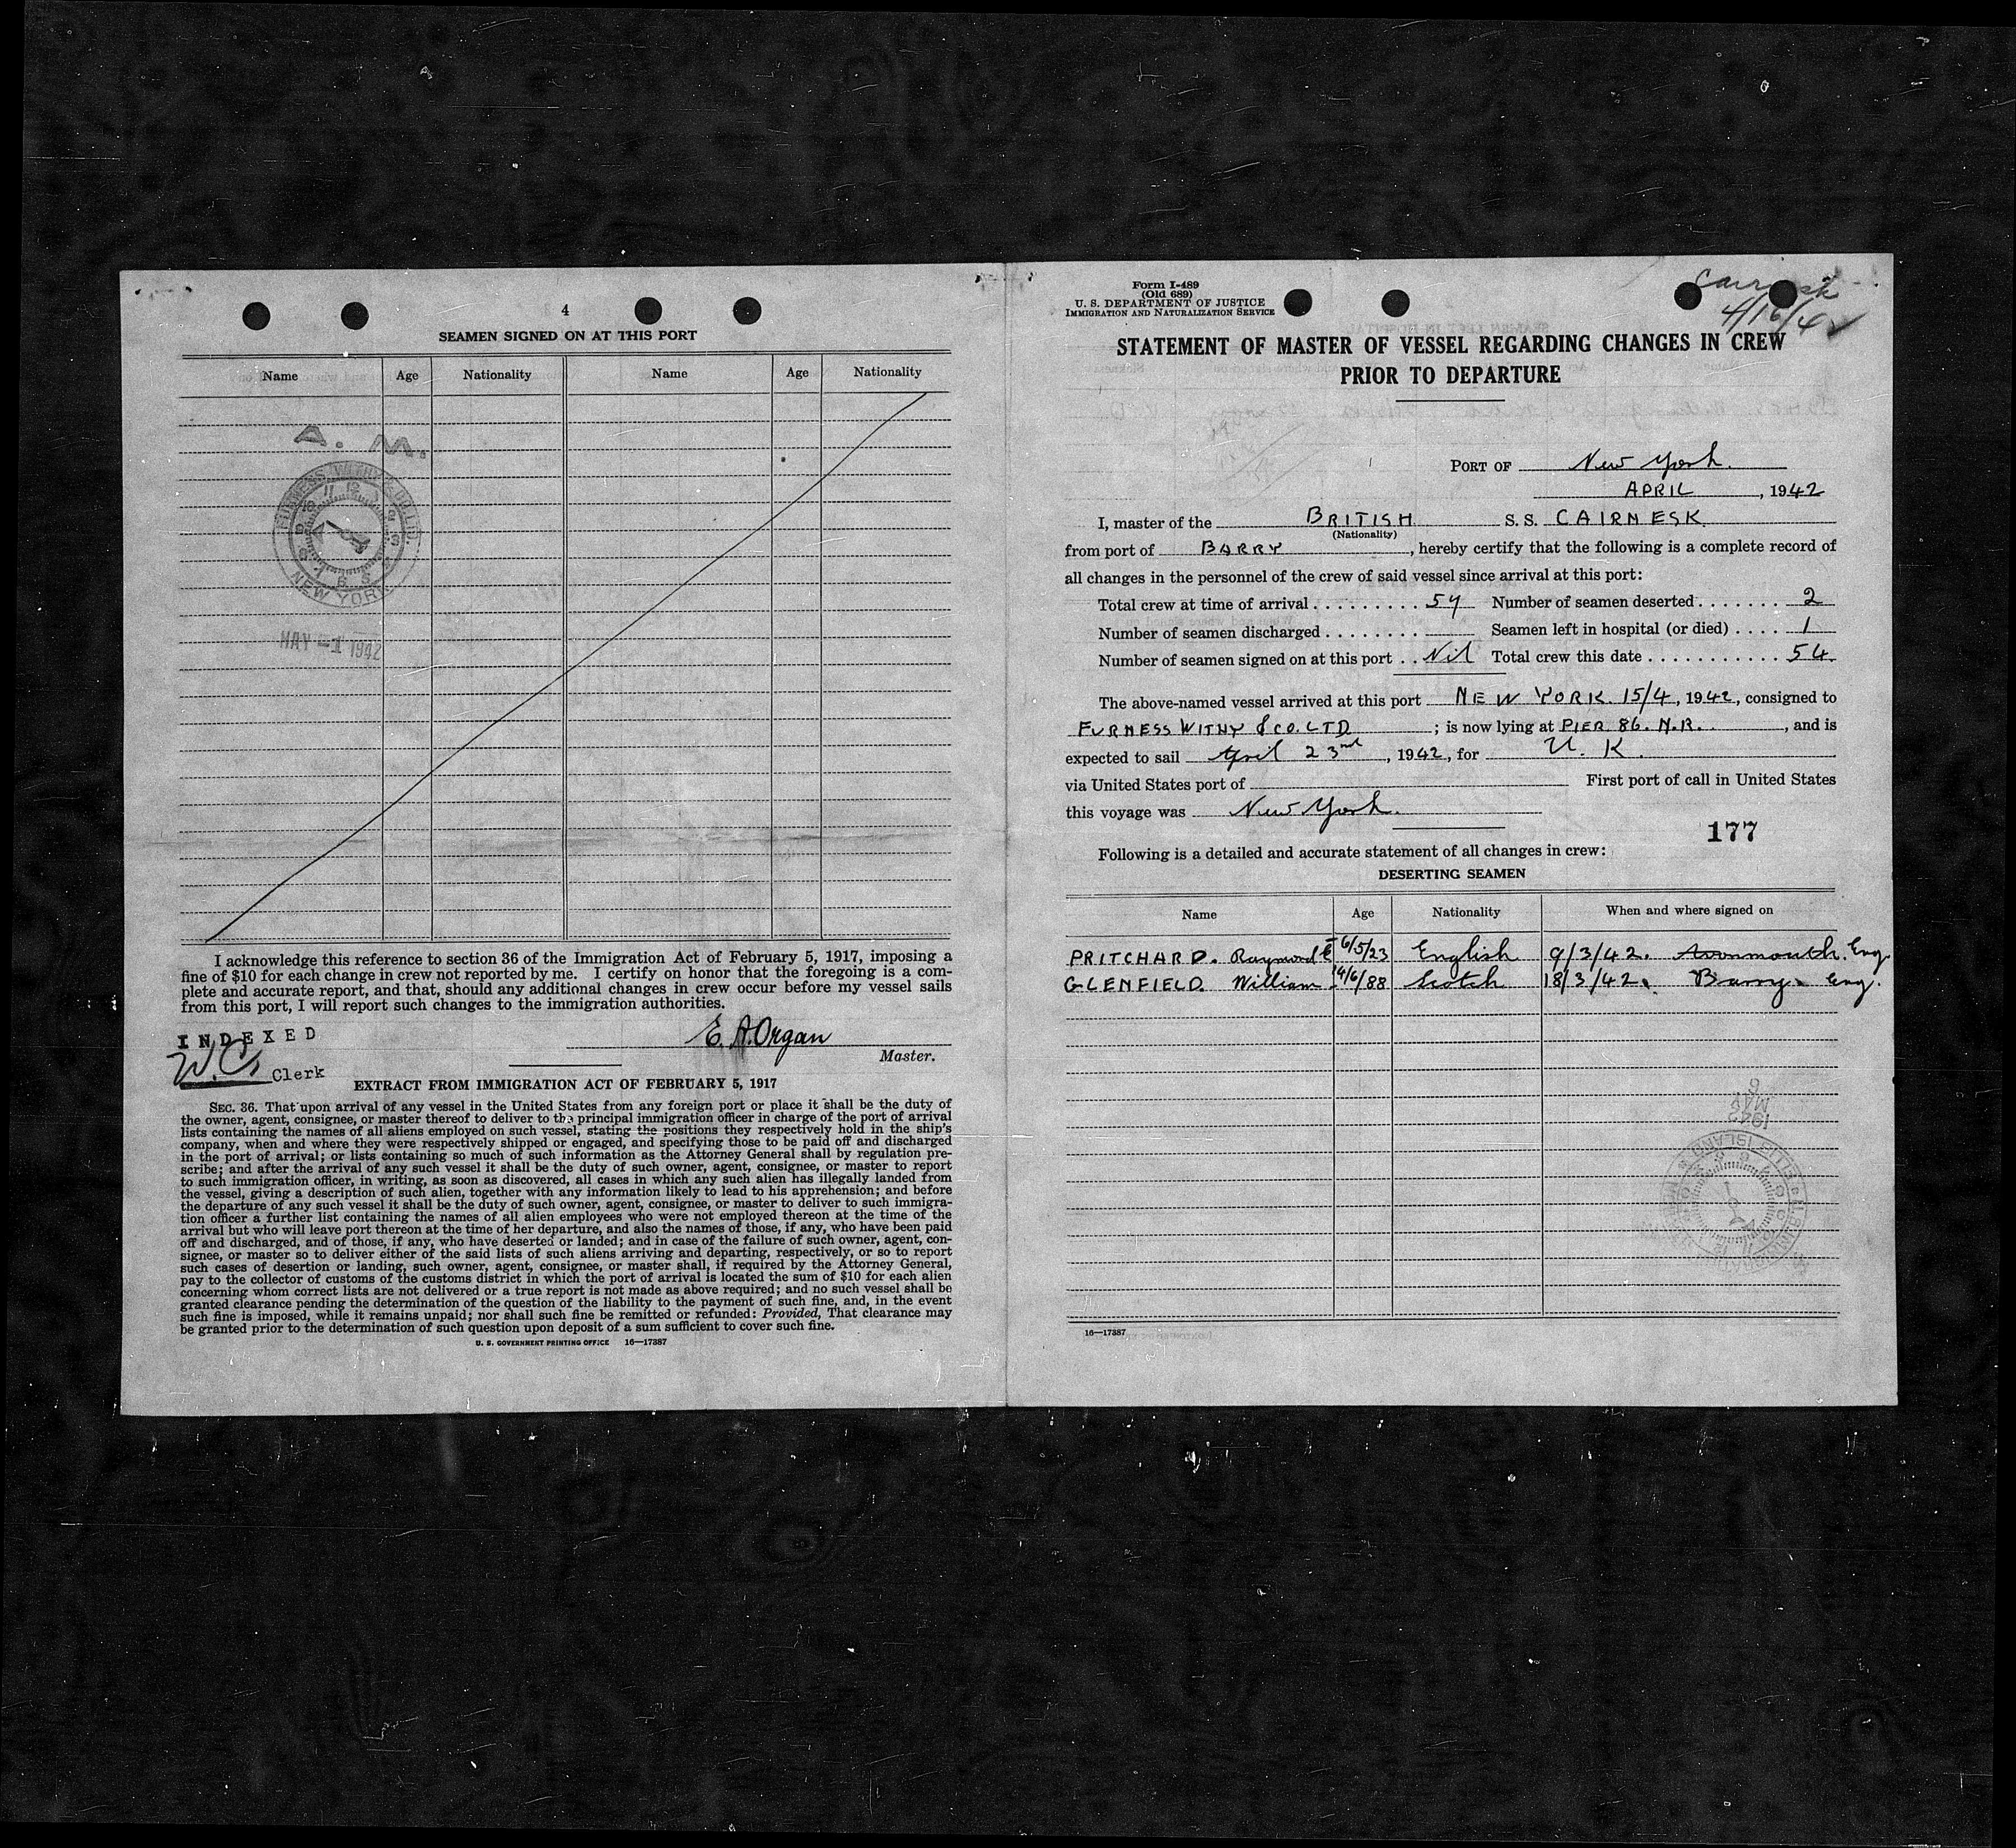 4
SEAMEN SIGNED ON AT THIS PORT
Name Age Nationality Name Age Nationality
A. M.
FURNESS WITHY & CO. LTD.
NEW YORK
MAY -1 1942
I acknowledge this reference to section 36 of the Immigration Act of February 5, 1917, imposing a
fine of $10 for each change in crew not reported by me. I certify on honor that the foregoing is a com-
plete and accurate report, and that, should any additional changes in crew occur before my vessel sails
from this port, I will report such changes to the immigration authorities.
INDEXED
E. A. Organ
Master.
Clerk
EXTRACT FROM IMMIGRATION ACT OF FEBRUARY 5, 1917
SEC. 36. That upon arrival of any vessel in the United States from any foreign port or place it shall be the duty of
the owner, agent, consignee, or master thereof to deliver to the principal immigration officer in charge of the port of arrival
lists containing the names of all aliens employed on such vessel, stating the positions they respectively hold in the ship's
company, when and where they were respectively shipped or engaged, and specifying those to be paid off and discharged
in the port of arrival; or lists containing so much of such information as the Attorney General shall by regulation pre-
scribe; and after the arrival of any such vessel it shall be the duty of such owner, agent, consignee, or master to report
to such immigration officer, in writing, as soon as discovered, all cases in which any such alien has illegally landed from
the vessel, giving a description of such alien, together with any information likely to lead to his apprehension; and before
the departure of any such vessel it shall be the duty of such owner, agent, consignee, or master to deliver to such immigra-
tion officer a further list containing the names of all alien employees who were not employed thereon at the time of the
arrival but who will leave port thereon at the time of her departure, and also the names of those, if any, who have been paid
off and discharged, and of those, if any, who have deserted or landed; and in case of the failure of such owner, agent, con-
signee, or master so to deliver either of the said lists of such aliens arriving and departing, respectively, or so to report
such cases of desertion or landing, such owner, agent, consignee, or master shall, if required by the Attorney General,
pay to the collector of customs of the customs district in which the port of arrival is located the sum of $10 for each alien
concerning whom correct lists are not delivered or a true report is not made as above required; and no such vessel shall be
granted clearance pending the determination of the question of the liability to the payment of such fine, and, in the event
such fine is imposed, while it remains unpaid; nor shall such fine be remitted or refunded: Provided, That clearance may
be granted prior to the determination of such question upon deposit of a sum sufficient to cover such fine.
U. S. GOVERNMENT PRINTING OFFICE 16—17387
Form I-489
(Old 689)
U. S. DEPARTMENT OF JUSTICE
IMMIGRATION AND NATURALIZATION SERVICE
4/16/42
STATEMENT OF MASTER OF VESSEL REGARDING CHANGES IN CREW
PRIOR TO DEPARTURE
PORT OF New York.
APRIL, 1942
I, master of the BRITISH S. S. CAIRNESK
(Nationality)
from port of BARRY, hereby certify that the following is a complete record of
all changes in the personnel of the crew of said vessel since arrival at this port:
Total crew at time of arrival . . . . . . . . . 57 Number of seamen deserted . . . . . . . 2
Number of seamen discharged . . . . . . . . Seamen left in hospital (or died) . . . . 1
Number of seamen signed on at this port . . Nil Total crew this date . . . . . . . . . . . . 54
The above-named vessel arrived at this port NEW YORK 15/4, 1942, consigned to
FURNESS WITHY & CO. LTD ; is now lying at PIER 86. N.R. , and is
expected to sail April 23rd, 1942, for U. K.
via United States port of First port of call in United States
this voyage was New York.
177
Following is a detailed and accurate statement of all changes in crew:
DESERTING SEAMEN
Name Age Nationality When and where signed on
PRITCHARD. Raymond 6/5/23 English 9/3/42. Avonmouth. Eng.
GLENFIELD. William 14/6/88 Scotch 18/3/42. Barry. Eng.
1942
MAY
6
16—17387